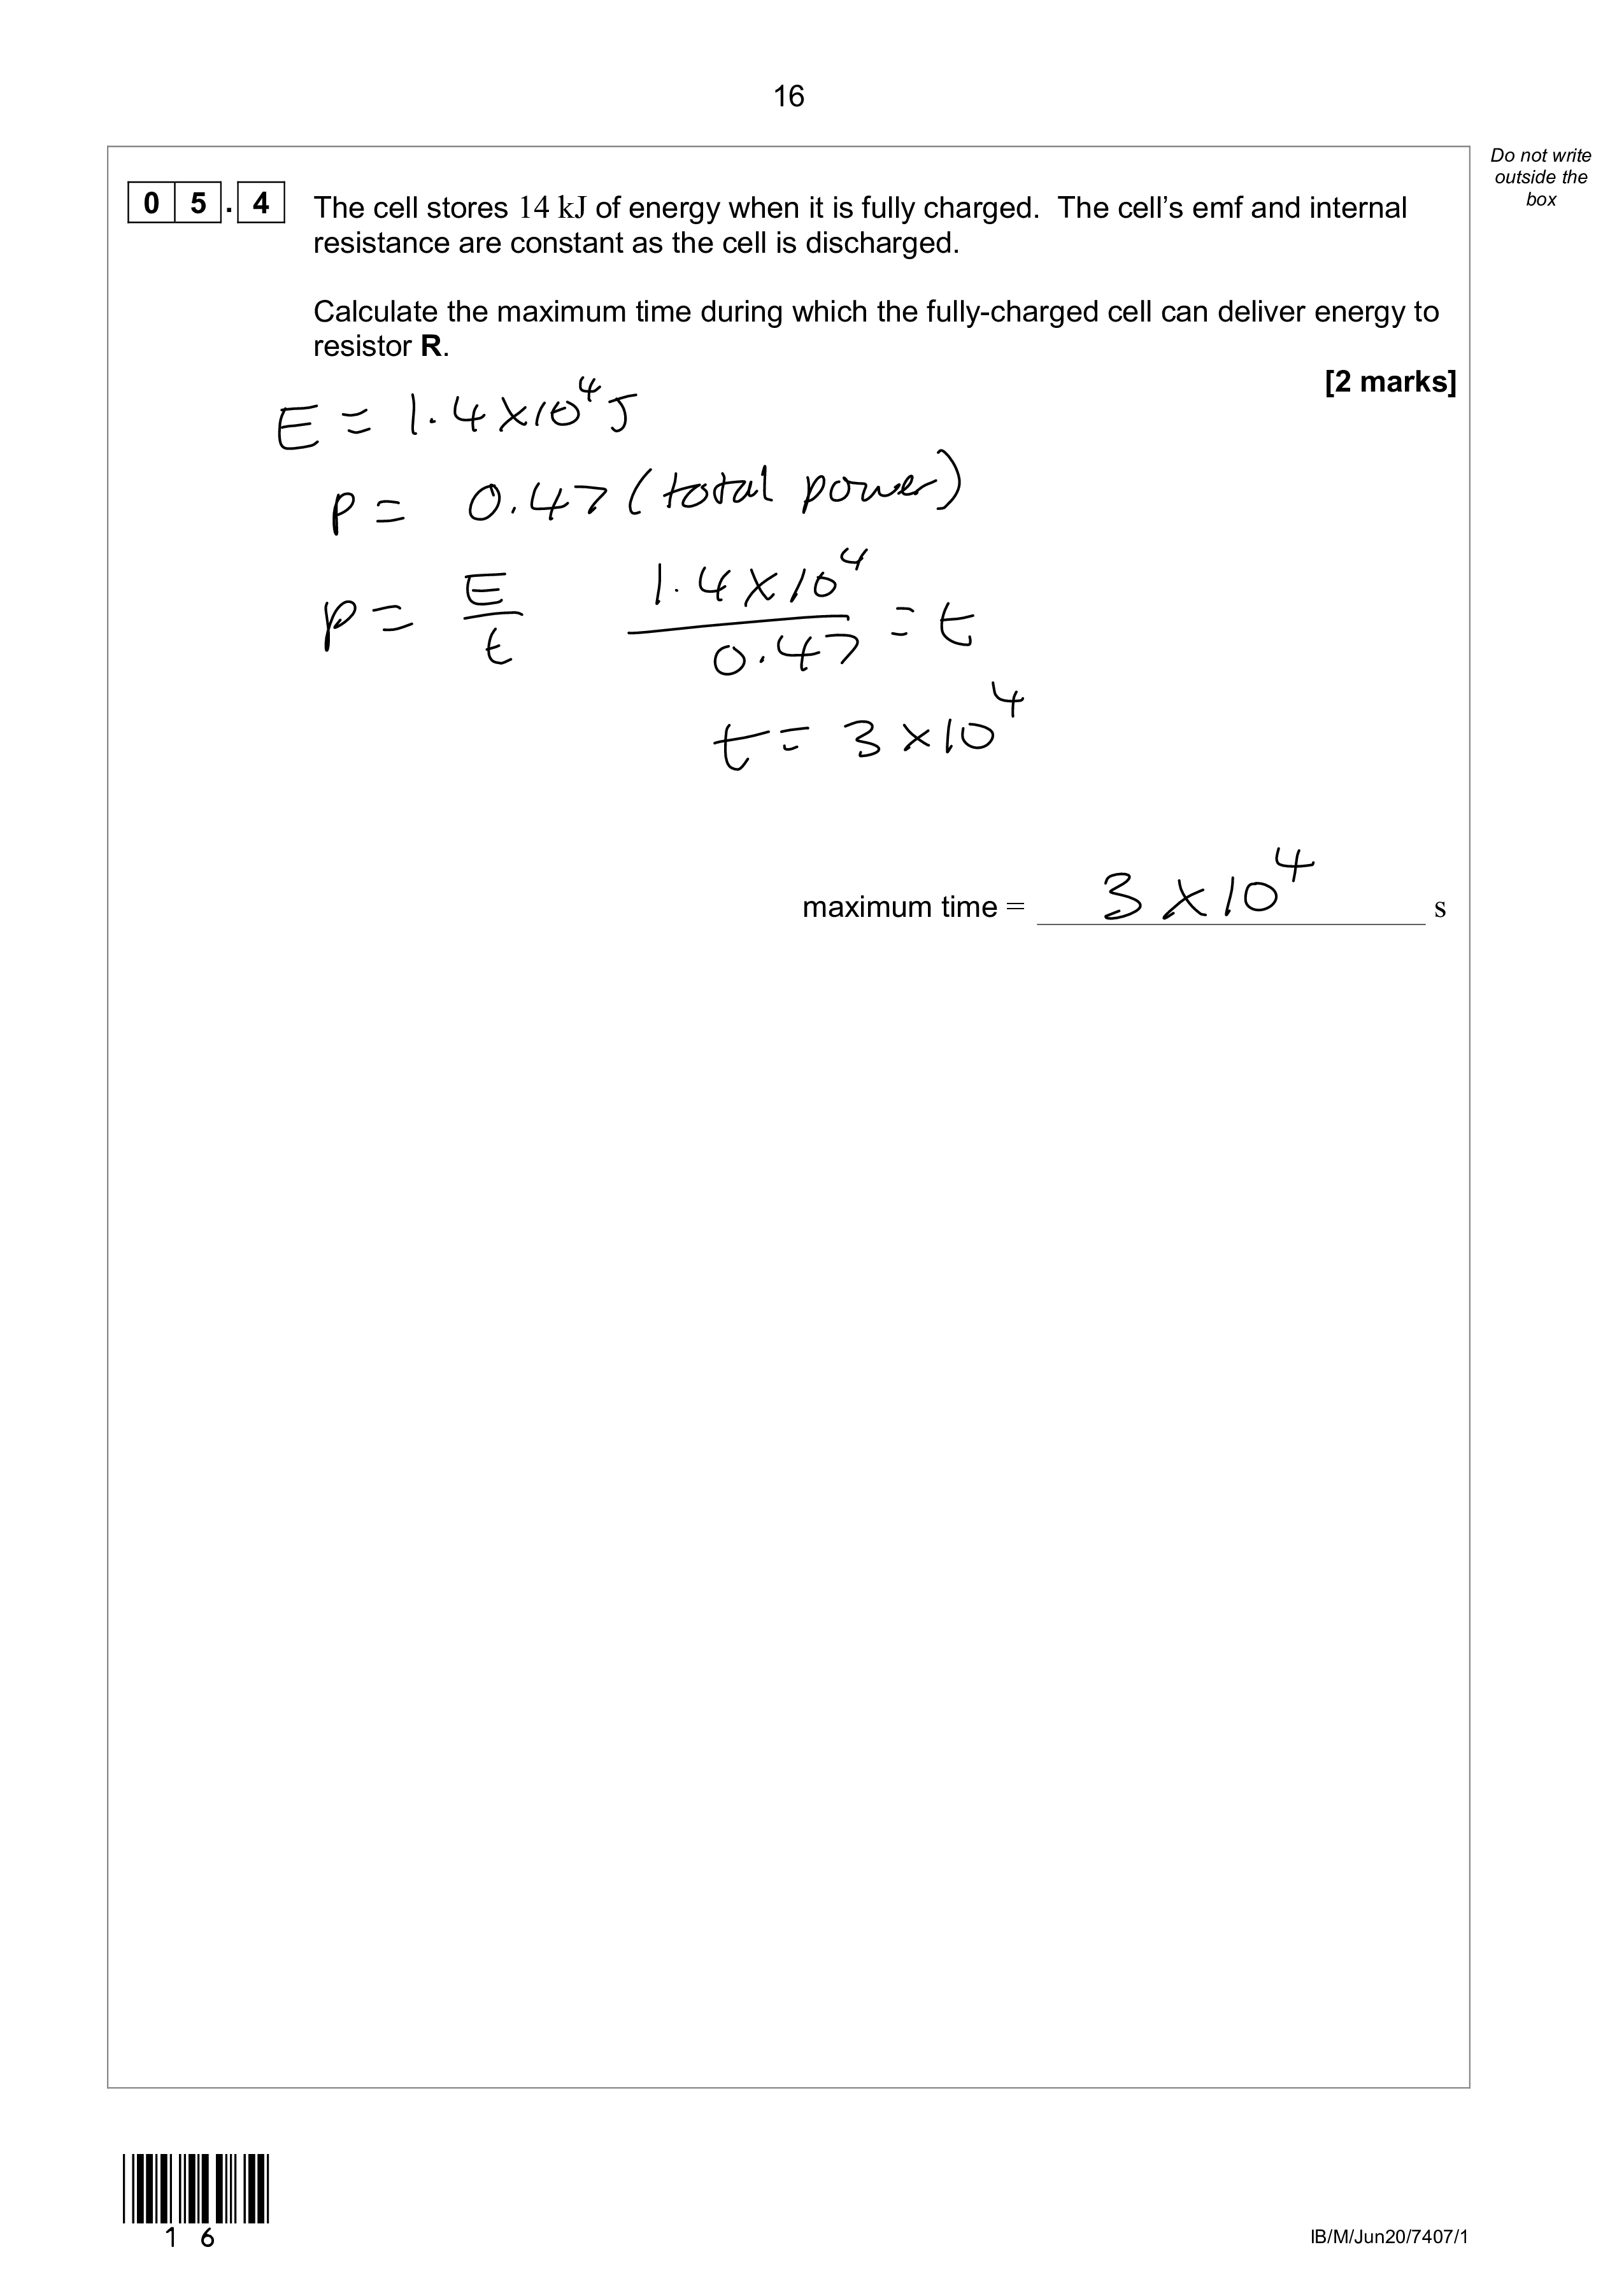 16
Do not write
outside the
box
0 5 . 4 The cell stores 14 kJ of energy when it is fully charged. The cell’s emf and internal
resistance are constant as the cell is discharged.
Calculate the maximum time during which the fully-charged cell can deliver energy to
resistor R.
[2 marks]
E = 1.4×10⁴J
P = 0.47 (total power)
P = E/t 1.4×10⁴/0.47 = t
t = 3×10⁴
maximum time = 3×10⁴ s
1 6
IB/M/Jun20/7407/1